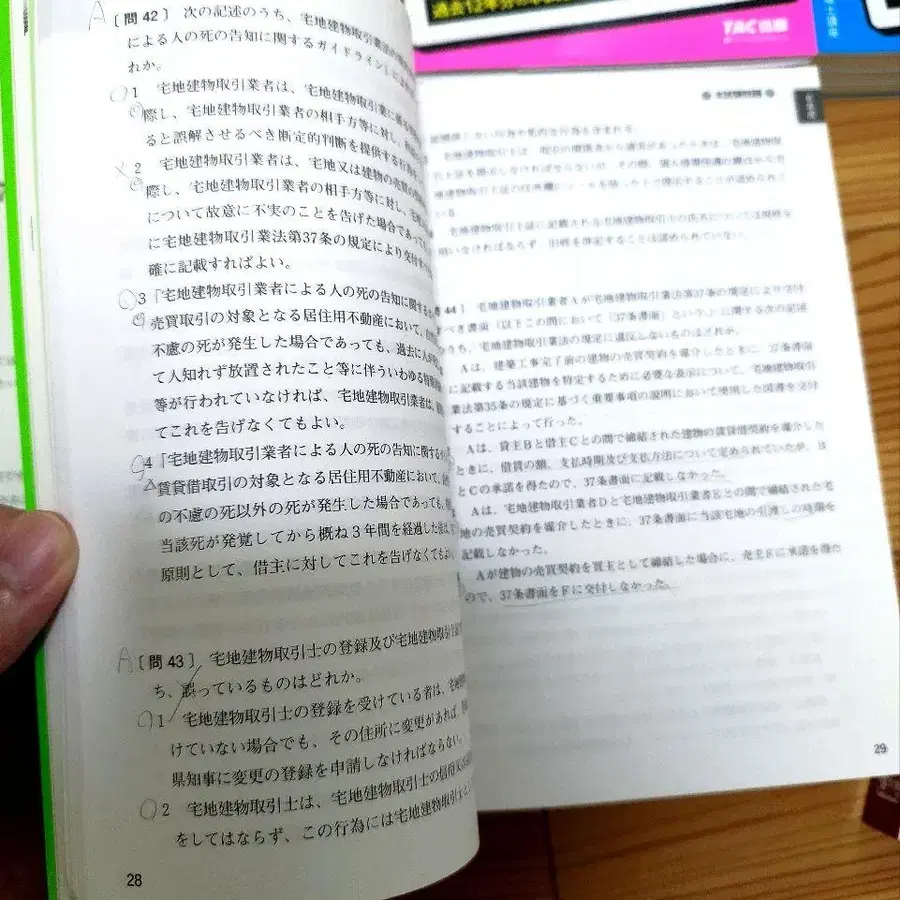 過去12年分の
TAC出版
A〔問 42〕 次の記述のうち、宅地建物取引業法の
による人の死の告知に関するガイドライン」に
れか。
1 宅地建物取引業者は、宅地建物取引業に
際し、宅地建物取引業者の相手方等に対し、
ると誤解させるべき断定的判断を提供する行為
× 2 宅地建物取引業者は、宅地又は建物の売買の
際し、宅地建物取引業者の相手方等に対し、
について故意に不実のことを告げた場合であって
に宅地建物取引業法第37条の規定により交付すべ
確に記載すればよい。
3 「宅地建物取引業者による人の死の告知に関する
売買取引の対象となる居住用不動産において、
不慮の死が発生した場合であっても、過去に人が
て人知れず放置されたこと等に伴ういわゆる特
等が行われていなければ、宅地建物取引業者は、
てこれを告げなくてもよい。
4 「宅地建物取引業者による人の死の告知に関する
賃貸借取引の対象となる居住用不動産において、
の不慮の死以外の死が発生した場合であっても、
当該死が発覚してから概ね3年間を経過した後は、
原則として、借主に対してこれを告げなくてもよ
A〔問 43〕 宅地建物取引士の登録及び宅地建物取引士
ち、誤っているものはどれか。
1 宅地建物取引士の登録を受けている者は、
けていない場合でも、その住所に変更があれば、
県知事に変更の登録を申請しなければならない。
2 宅地建物取引士は、宅地建物取引士の信用
をしてはならず、この行為には宅地建物取引士
28
本試験問題
宅地建物取引士証に記載される宅地建物取引士の氏名については旧姓を
用いなければならず、旧姓を併記することは認められていない。
44〕 宅地建物取引業者Aが宅地建物取引業法第37条の規定により交付
べき書面（以下この問において「37条書面」という。）に関する次の記述
うち、宅地建物取引業法の規定に違反しないものはどれか。
Aは、建築工事完了前の建物の売買契約を媒介したときに、37条書面
に記載する当該建物を特定するために必要な表示について、宅地建物取引
業法第35条の規定に基づく重要事項の説明において使用した図書を交付
することによって行った。
Aは、貸主Bと借主Cとの間で締結された建物の賃貸借契約を媒介した
ときに、借賃の額、支払時期及び支払方法について定められていたが、B
とCの承諾を得たので、37条書面に記載しなかった。
Aは、宅地建物取引業者Dと宅地建物取引業者Eとの間で締結された宅
地の売買契約を媒介したときに、37条書面に当該宅地の引渡しの時期を
記載しなかった。
Aが建物の売買契約を買主として締結した場合に、売主Fに承諾を得た
ので、37条書面をFに交付しなかった。
29